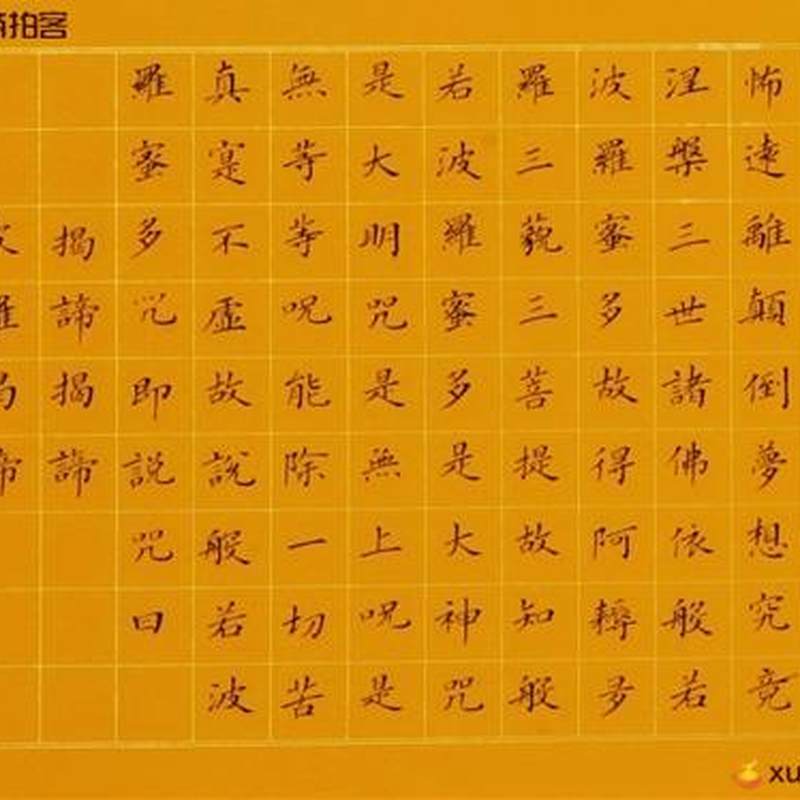 拍客
怖遠離顛倒夢想究竟
涅槃三世諸佛依般若
波羅蜜多故得阿耨多
羅三藐三菩提故知般
若波羅蜜多是大神咒
是大明咒是無上呪是
無等等呪能除一切苦
真寔不虛故說般若波
羅蜜多咒即説咒曰
揭諦揭諦
xu